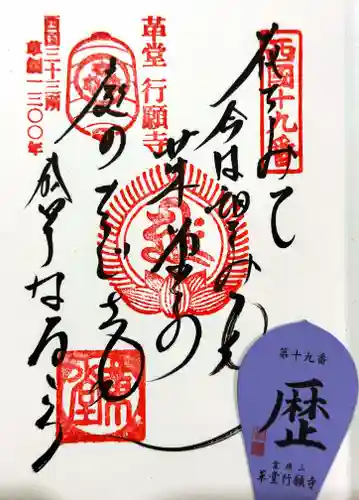 西国十九番
花をみて
今は望みも
革堂の
庭のちぐさも
盛りなるらん
革堂 行願寺
西国三十三所
草創一三〇〇年
革堂
第十九番
歴
革堂行願寺